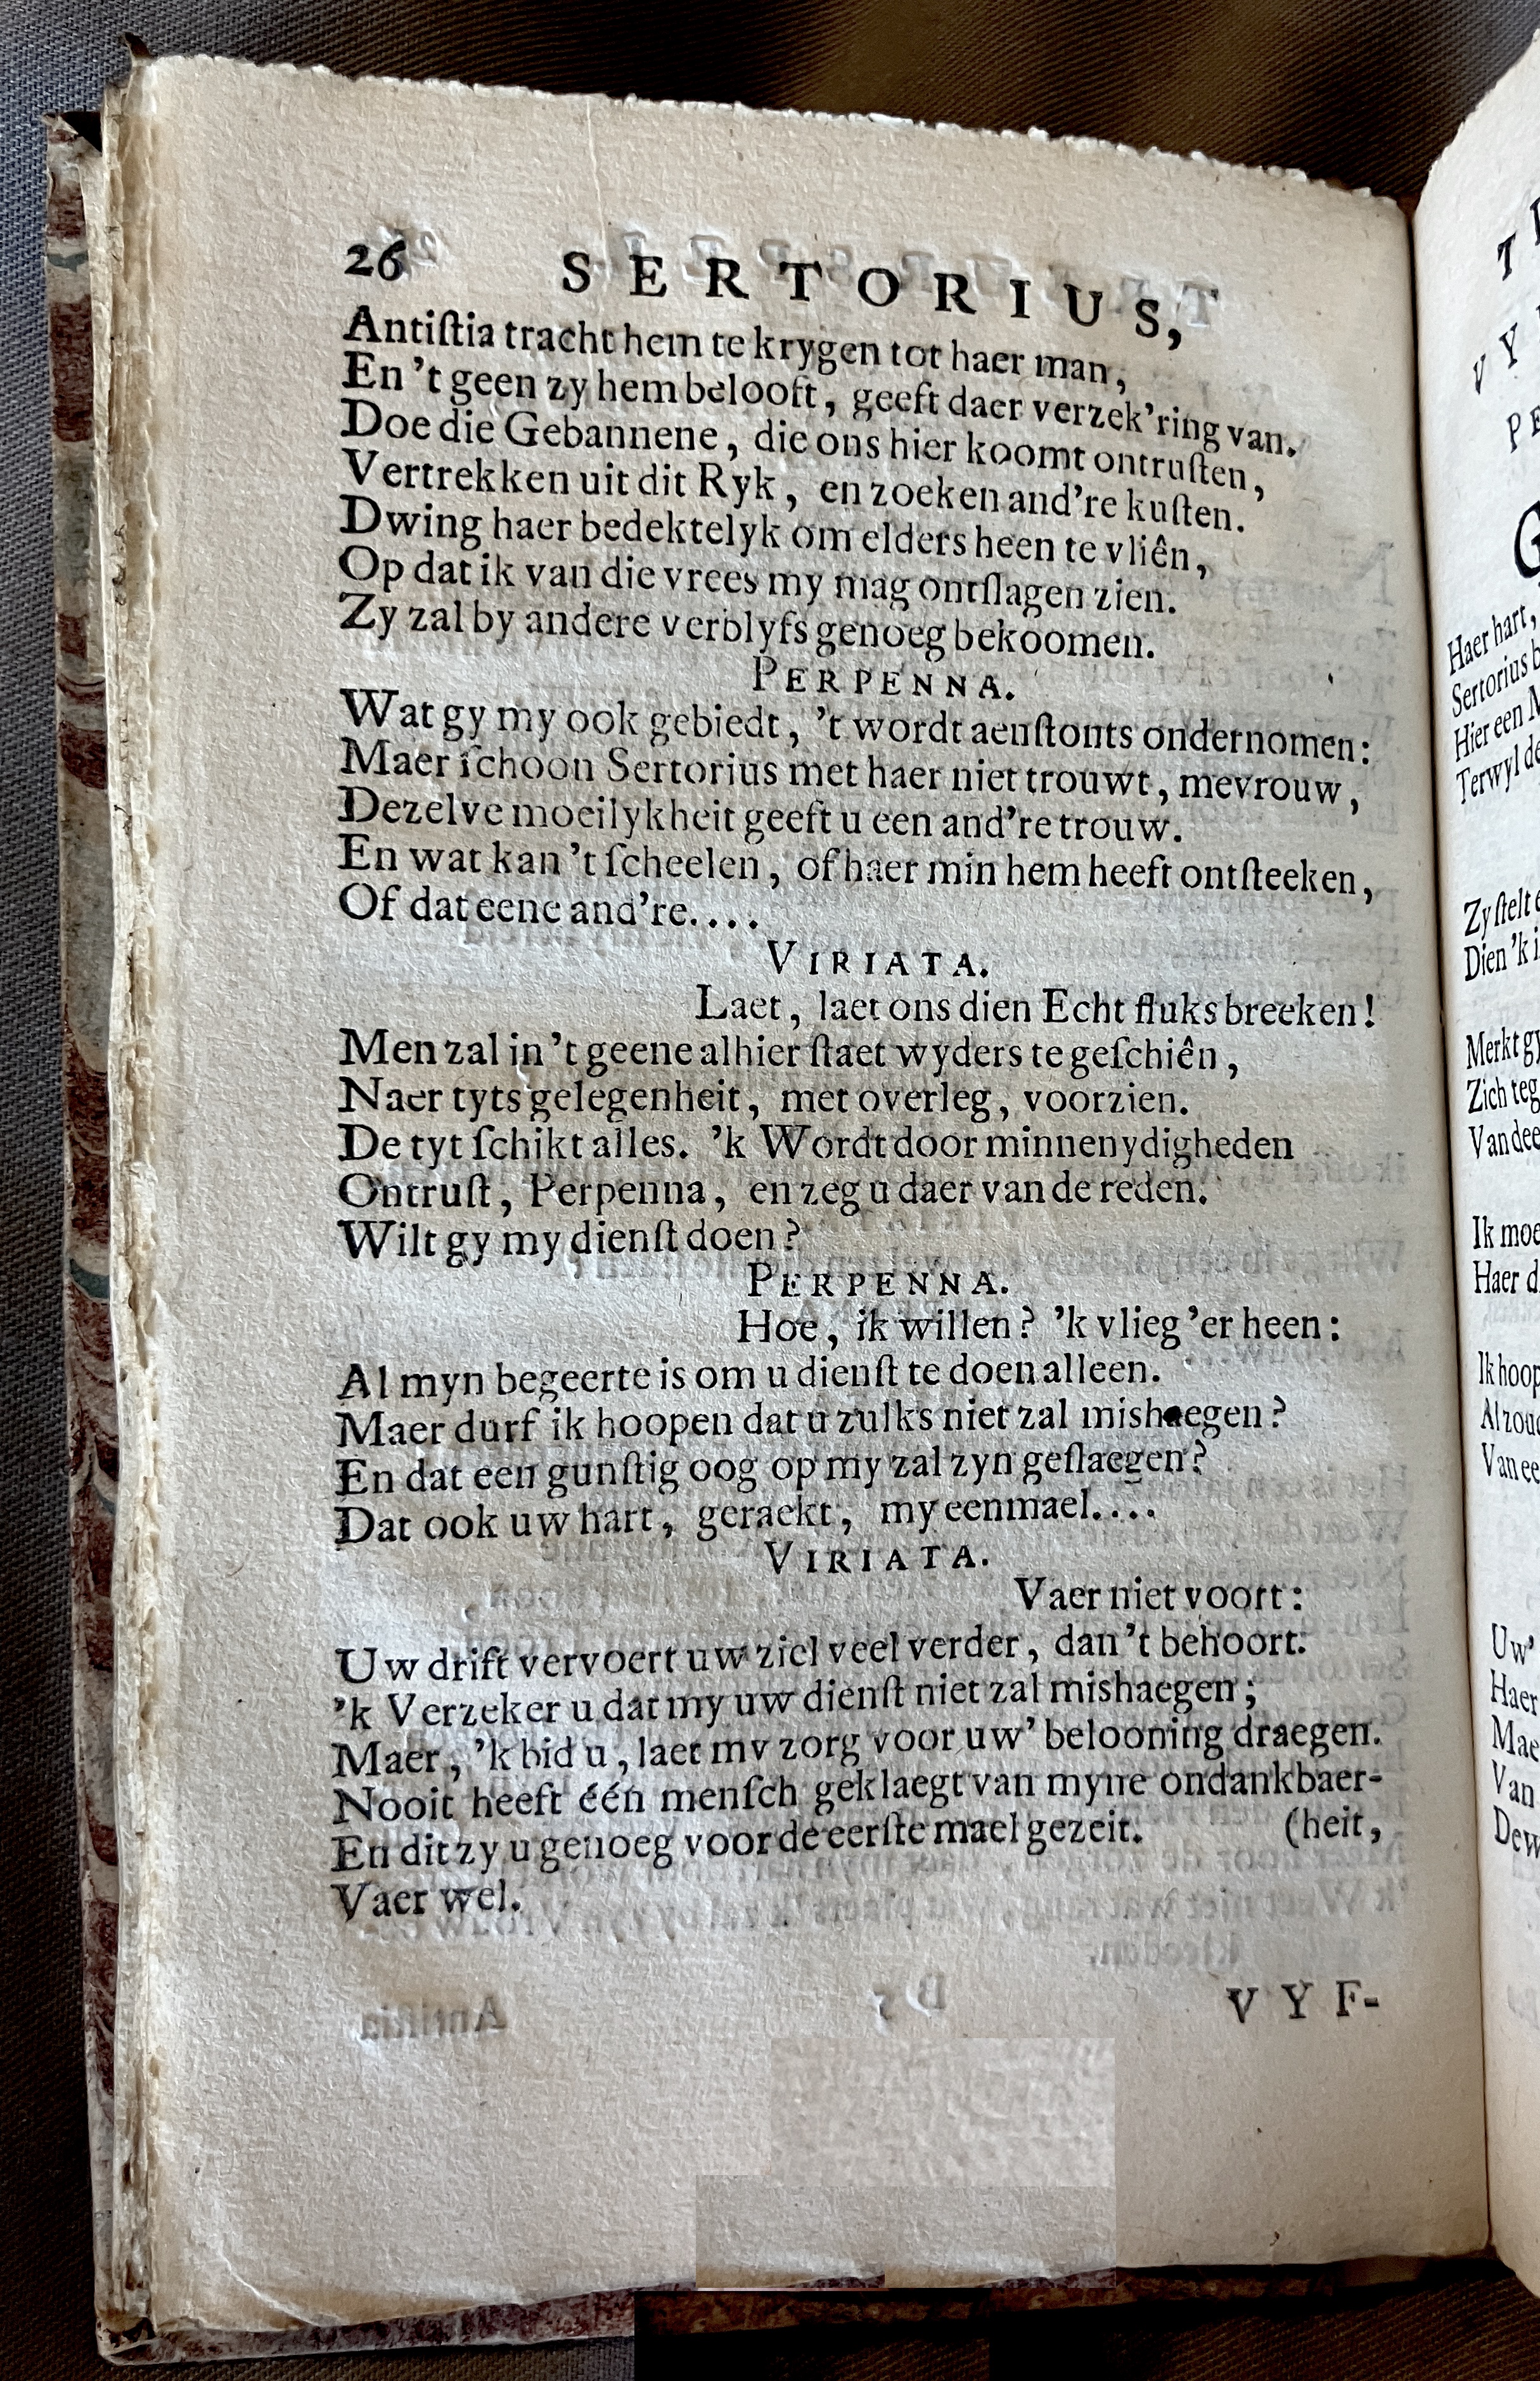 26 SERTORIUS,
Antiſtia tracht hem te krygen tot haer man,
En 't geen zy hem belooft, geeft daer verzek'ring van.
Doe die Gebannene, die ons hier koomt ontruſten,
Vertrekken uit dit Ryk, en zoeken and're kuſten.
Dwing haer bedektelyk om elders heen te vliên,
Op dat ik van die vrees my mag ontſlagen zien.
Zy zal by andere verblyfs genoeg bekoomen.
PERPENNA.
Wat gy my ook gebiedt, 't wordt aenſtonts ondernomen:
Maer ſchoon Sertorius met haer niet trouwt, mevrouw,
Dezelve moeilykheit geeft u een and're trouw.
En wat kan 't ſcheelen, of haer min hem heeft ontſteeken,
Of dat eene and're....
VIRIATA.
Laet, laet ons dien Echt fluks breeken!
Men zal in 't geene alhier ſtaet wyders te geſchiên,
Naer tyts gelegenheit, met overleg, voorzien.
De tyt ſchikt alles. 'k Wordt door minnenydigheden
Ontruſt, Perpenna, en zeg u daer van de reden.
Wilt gy my dienſt doen?
PERPENNA.
Hoe, ik willen? 'k vlieg 'er heen:
Al myn begeerte is om u dienſt te doen alleen.
Maer durf ik hoopen dat u zulks niet zal mishaegen?
En dat een gunſtig oog op my zal zyn geſlaegen?
Dat ook uw hart, geraekt, my eenmael....
VIRIATA.
Vaer niet voort:
Uw drift vervoert uw ziel veel verder, dan 't behoort.
'k Verzeker u dat my uw dienſt niet zal mishaegen;
Maer, 'k bid u, laet my zorg voor uw' belooning draegen.
Nooit heeft één menſch geklaegt van myne ondankbaer-
En dit zy u genoeg voor de eerſte mael gezeit. (heit,
Vaer wel.
VYF-
Haer hart,
Sertorius
Hier een
Terwyl
Zy ſtelt
Dien 'k
Merkt gy
Zich
Ik
Haer
Ik
Uw'
Haer
Van